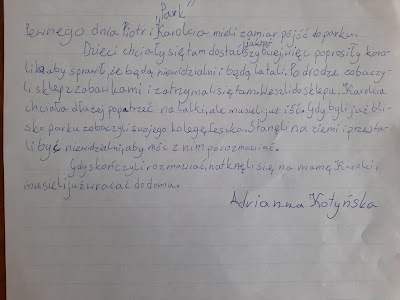 "Park"
Pewnego dnia Piotr i Karolcia mieli zamiar pójść do parku.
Dzieci chciały się tam dostać szybciej, więc poprosiły kora-
lik aby sprawił, że będą niewidzialni i będą latali. Po drodze zobaczy-
li sklep z zabawkami i zatrzymali się tam. Weszli do sklepu. Karolcia
chciała dłużej popatrzeć na lalki, ale musieli już iść. Gdy byli już bli-
sko parku zobaczyli swojego kolegę Leszka. Stanęli na ziemi i przesta-
li być niewidzialni, aby móc z nim porozmawiać.
Gdy skończyli rozmawiać, natknęli się na mamę Karolci i
musieli już wracać do domu.
Adrianna Kotyńska